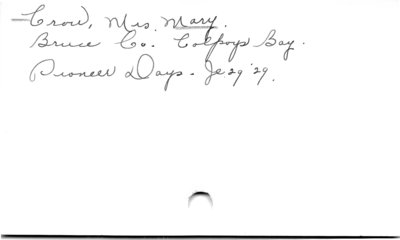 Crow, Mrs. Mary.
Bruce Co. Colpoys Bay.
Pioneer Days - Je 29 '29.